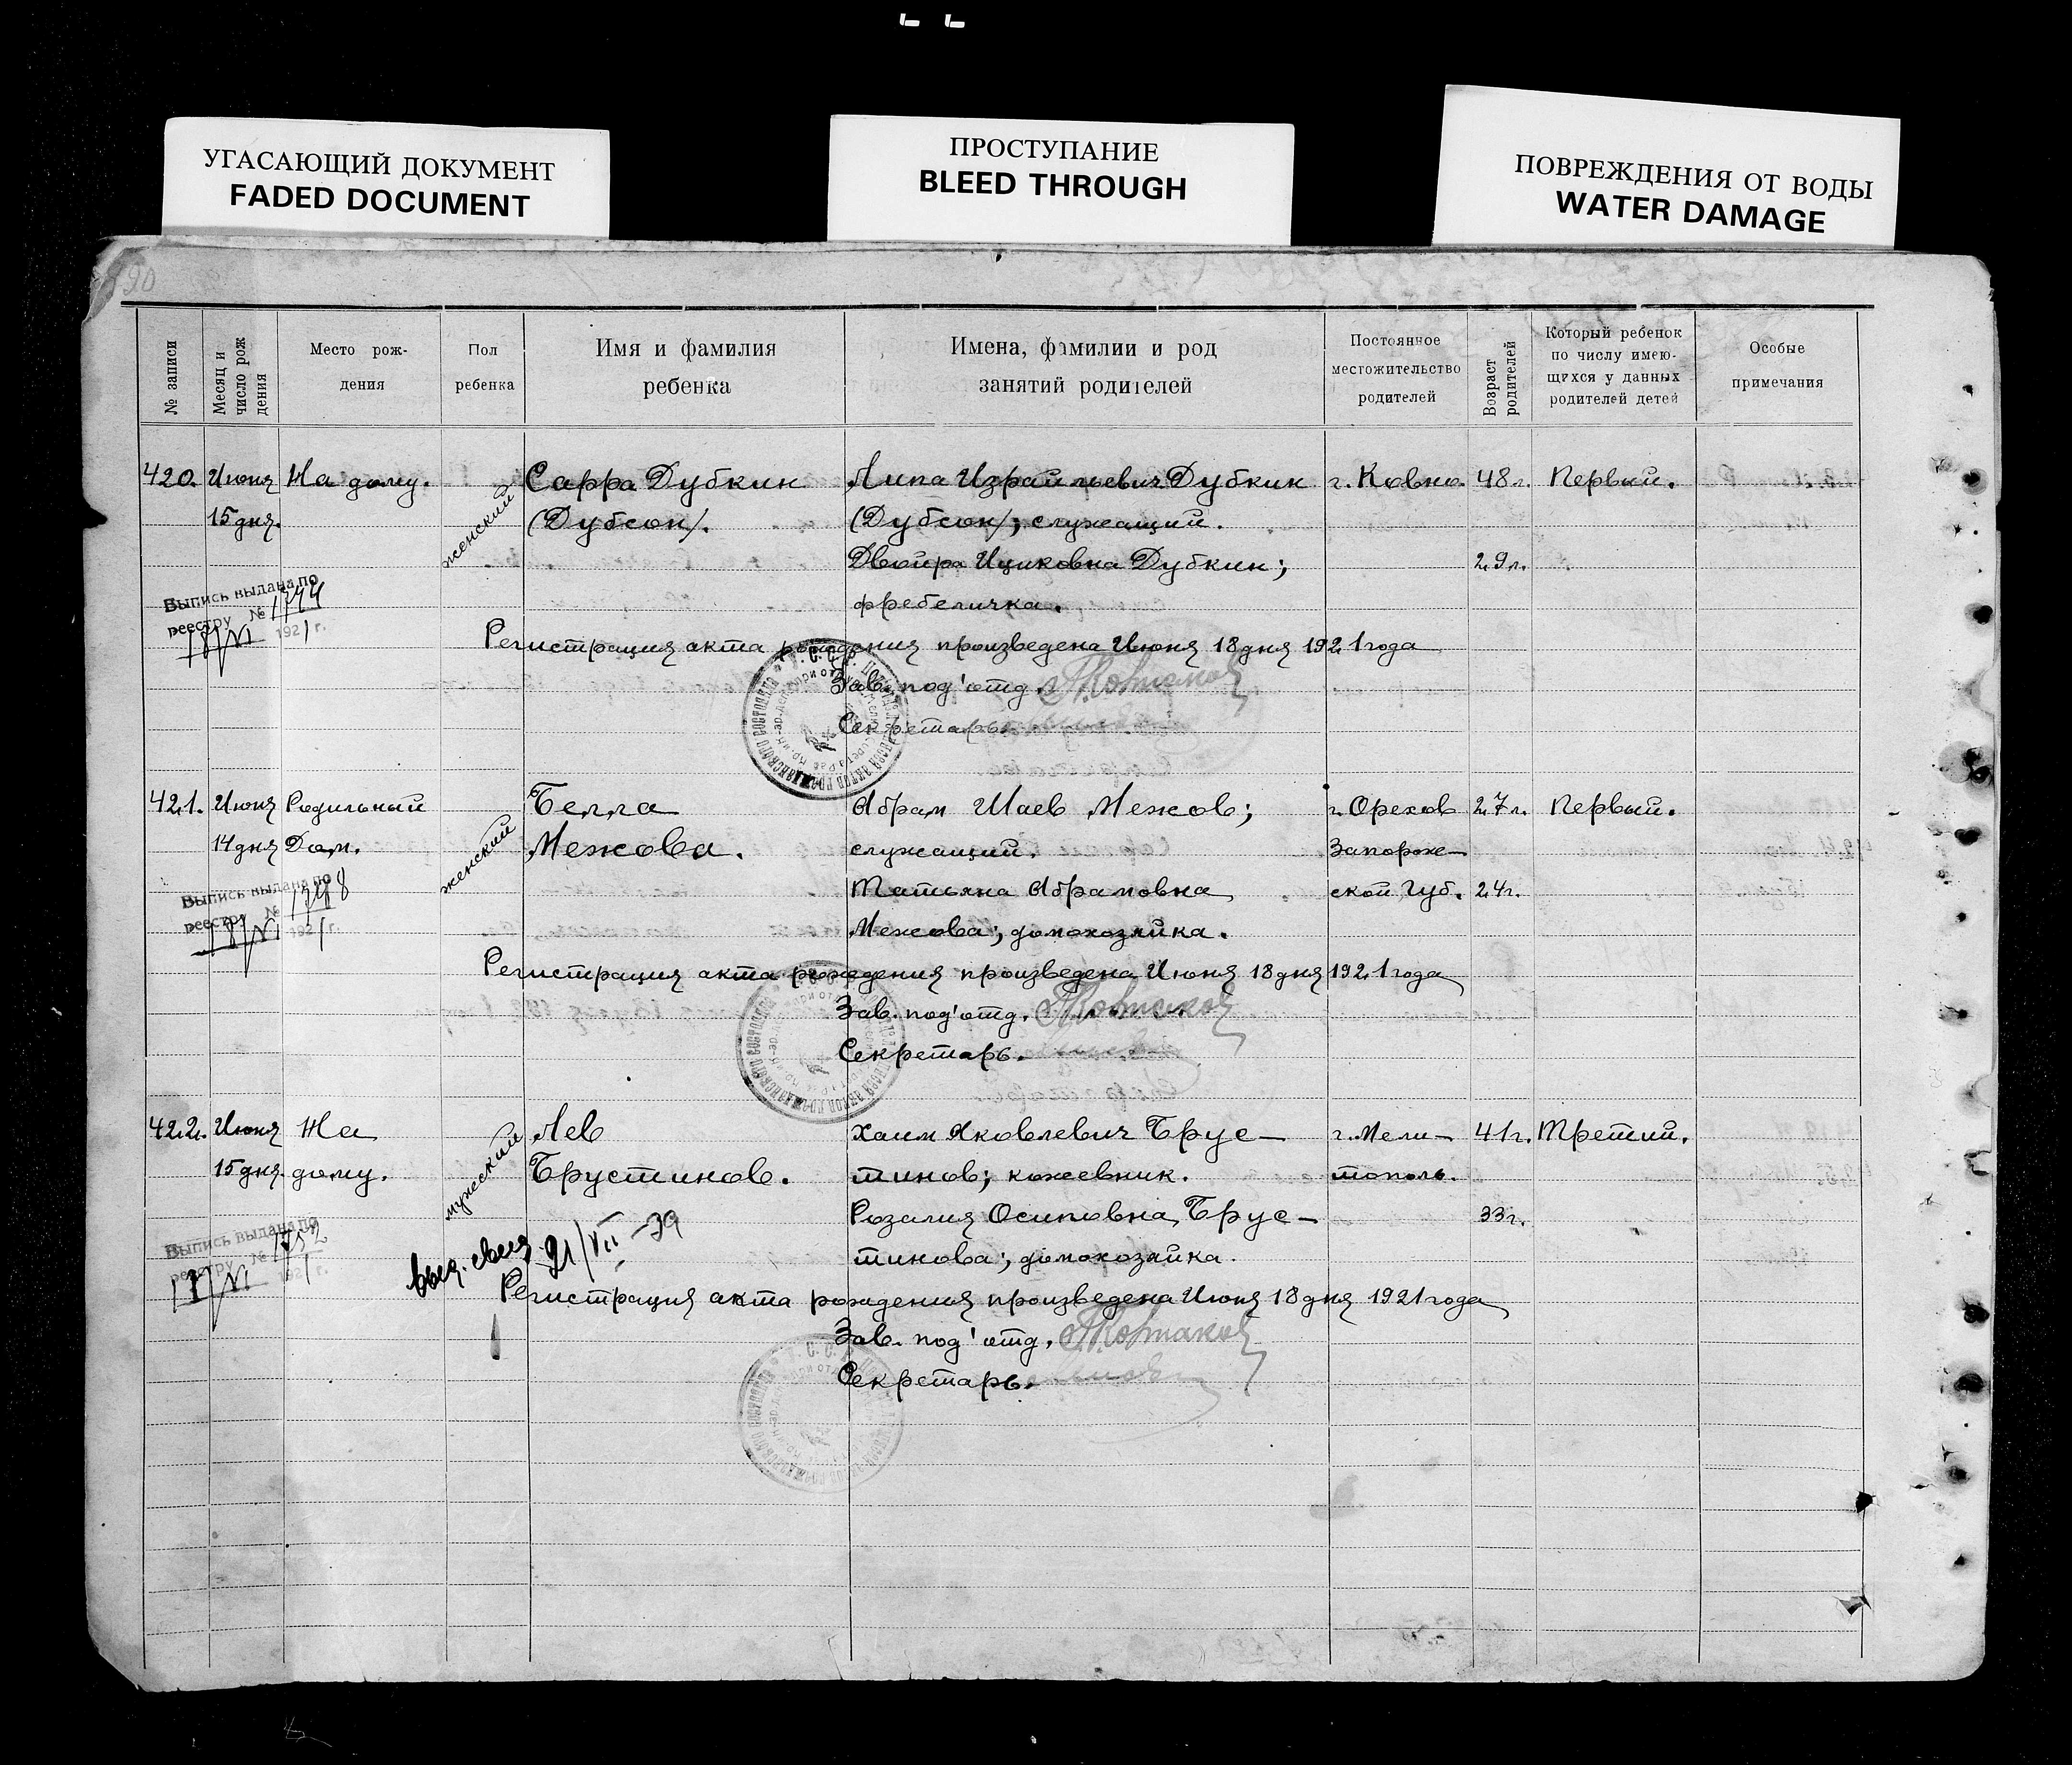 УГАСАЮЩИЙ ДОКУМЕНТ
FADED DOCUMENT
ПРОСТУПАНИЕ
BLEED THROUGH
ПОВРЕЖДЕНИЯ ОТ ВОДЫ
WATER DAMAGE
№ записи
Месяц и
число рож
дения
Место рож-
дения
Пол
ребенка
Имя и фамилия
ребенка
Имена, фамилии и род
занятий родителей
Постоянное
местожительство
родителей
Возраст
родителей
Который ребенок
по числу имею-
щихся у данных
родителей детей
Особые
примечания
420. Июня На дому. женский Сарра Дубкин Липа Израйльевич Дубкин г. Ковно. 48 л. Первый.
15 дня. (Дубсон). (Дубсон); служащий.
Двойра Ициковна Дубкин; 29 л.
фребеличка.
Выпись выдана по
реестру № 1744
18/VI 1921 г.
Регистрация акта рождения произведена Июня 18 дня 1921 года
Зав. под'отд.
Секретарь.
421. Июня Родильный женский Белла Абрам Шаев Межов; г. Орехов 27 л. Первый.
14 дня Дом. Межова. служащий. Запорож-
Татьяна Абрамовна ской Губ. 24 г.
Межова; домохозяйка.
Выпись выдана по
реестру № 1748
18/VI 1921 г.
Регистрация акта рождения произведена Июня 18 дня 1921 года
Зав. под'отд.
Секретарь.
422. Июня На мужеский Лев Хаим Яковлевич Брус- г. Мели- 41 г. Третий.
15 дня. дому. Брустинов. тинов; кожевник. тополь.
Розалия Осиповна Брус- 33 г.
тинова; домохозяйка.
Выпись выдана по
реестру № 1752
1921 г.
выд. свид. 21/VII-39
Регистрация акта рождения произведена Июня 18 дня 1921 года
Зав. под'отд.
Секретарь.